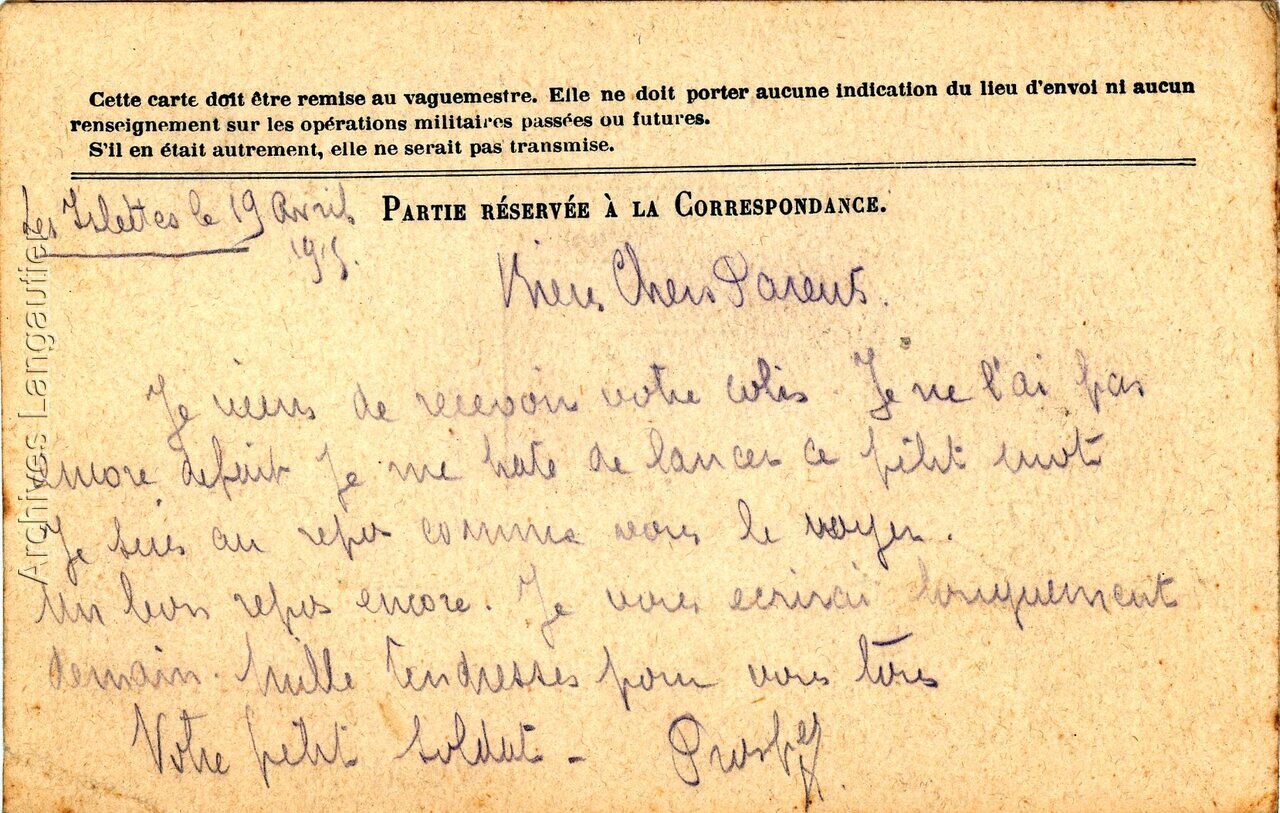 Cette carte doit être remise au vaguemestre. Elle ne doit porter aucune indication du lieu d'envoi ni aucun
renseignement sur les opérations militaires passées ou futures.
S'il en était autrement, elle ne serait pas transmise.
Les Islettes le 19 Avril
1915.
PARTIE RÉSERVÉE À LA CORRESPONDANCE.
Biens Chers Parents.
Je viens de recevoir votre colis. Je ne l'ai pas
encore défait je me hate de lancer ce petit mot
Je suis au repos comme vous le voyez.
Un bon repos encore. Je vous ecrirai longuement
demain. Mille tendresses pour vous tous
Votre petit soldat - Prosper
Archives Langautier